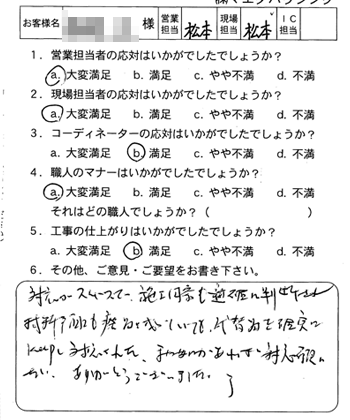 お客様名 様 営業担当 松本 現場担当 松本 IC担当
1．営業担当者の応対はいかがでしたでしょうか？
a. 大変満足 b. 満足 c. やや不満 d. 不満
2．現場担当者の応対はいかがでしたでしょうか？
a. 大変満足 b. 満足 c. やや不満 d. 不満
3．コーディネーターの応対はいかがでしたでしょうか？
a. 大変満足 b. 満足 c. やや不満 d. 不満
4．職人のマナーはいかがでしたでしょうか？
a. 大変満足 b. 満足 c. やや不満 d. 不満
それはどの職人でしょうか？（ ）
5．工事の仕上がりはいかがでしたでしょうか？
a. 大変満足 b. 満足 c. やや不満 d. 不満
6．その他、ご意見・ご要望をお書き下さい。
対応がスムースで、施工内容も適確に判断され
も 代替品を確実に
Keepし対応くれた、
ありがとうございました。